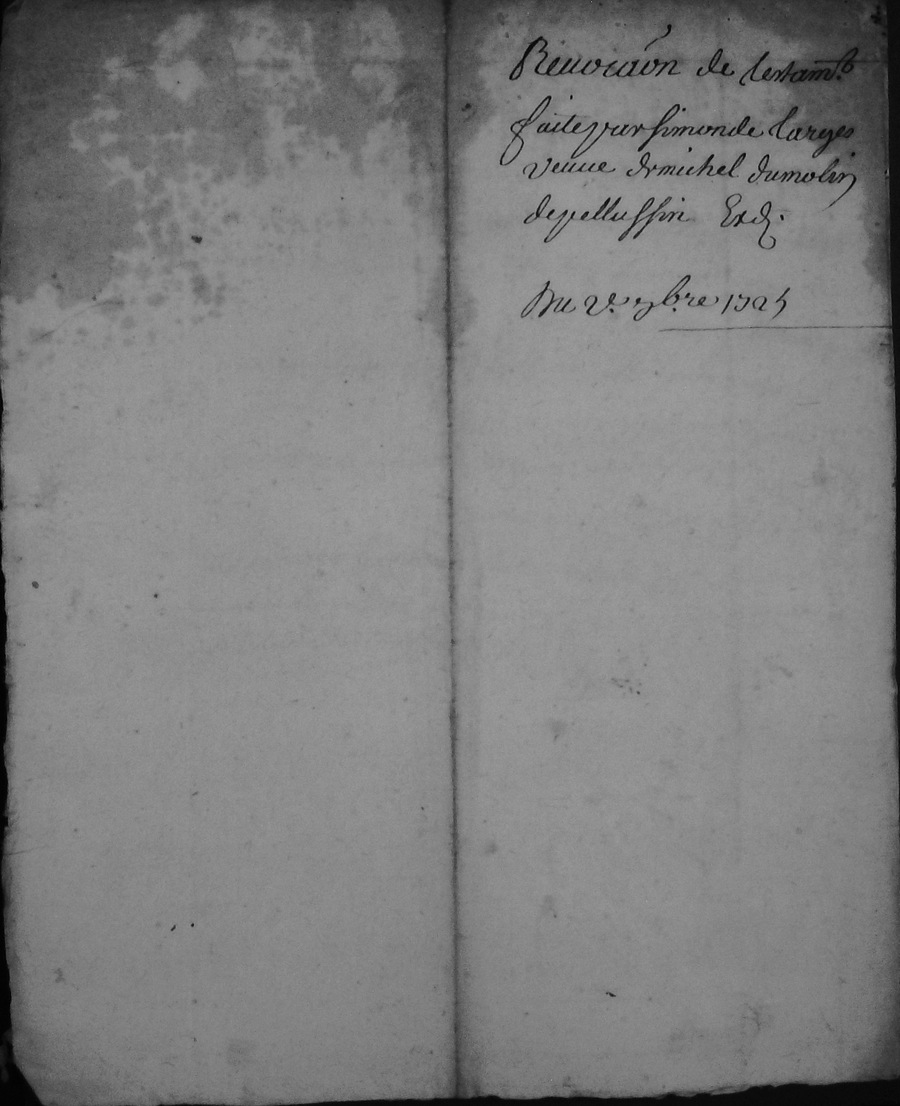 Reuocaôn de testam.t
faite par simonde larges
veuue de michel dumolin
de pellussin Exd.
Du 2.e 7bre 1725